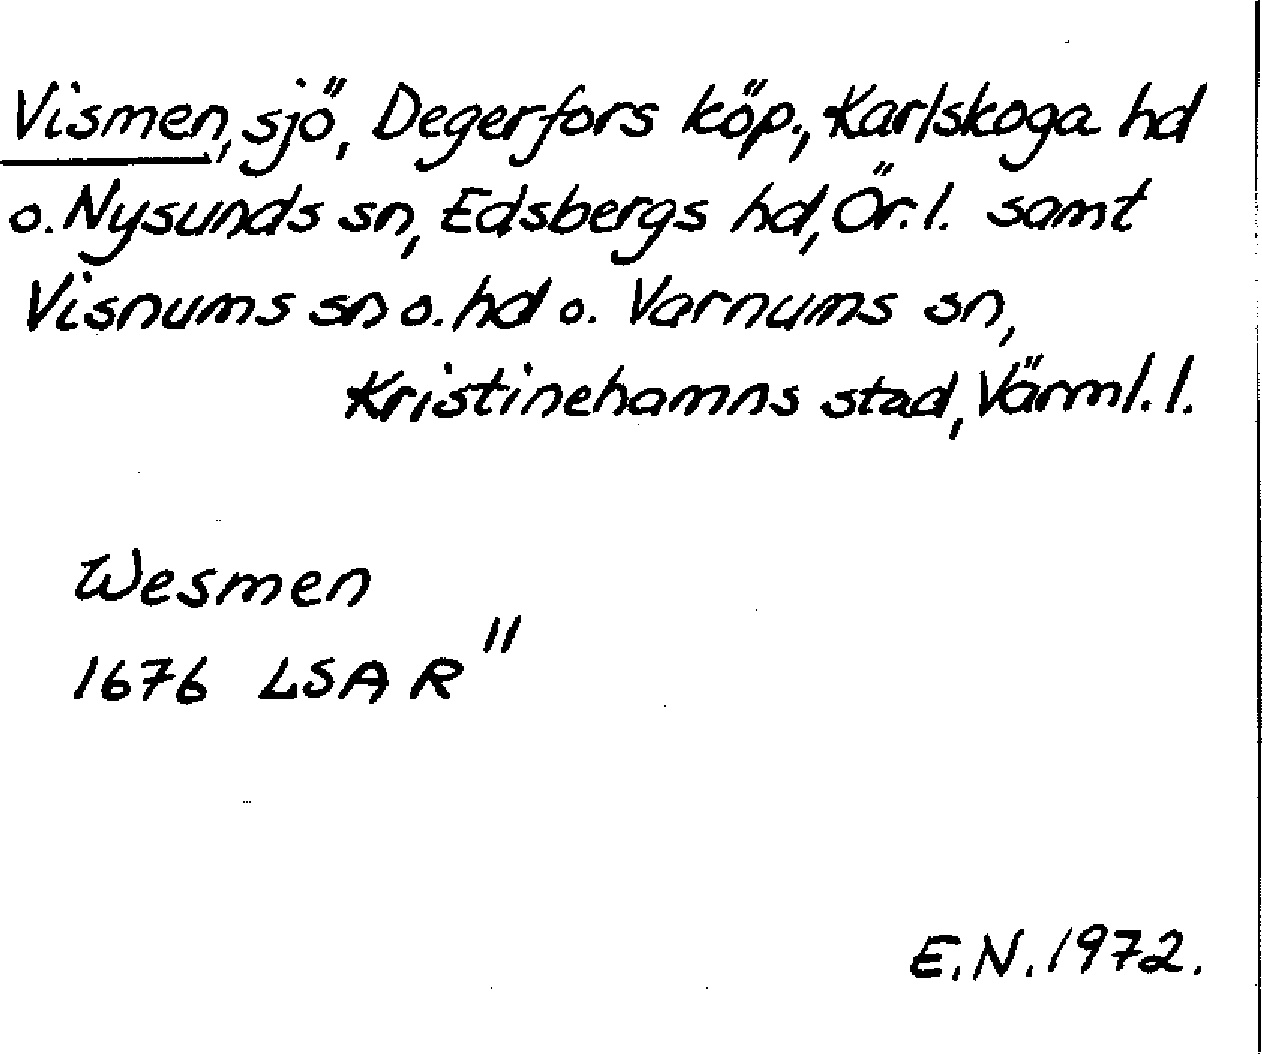 Vismen, sjö, Degerfors köp., Karlskoga hd
o. Nysunds sn, Edsbergs hd, Ör. l. samt
Visnums sn o. hd o. Varnums sn,
Kristinehamns stad, Värml. l.
Wesmen
1676 LSA R"
E.N. 1972.